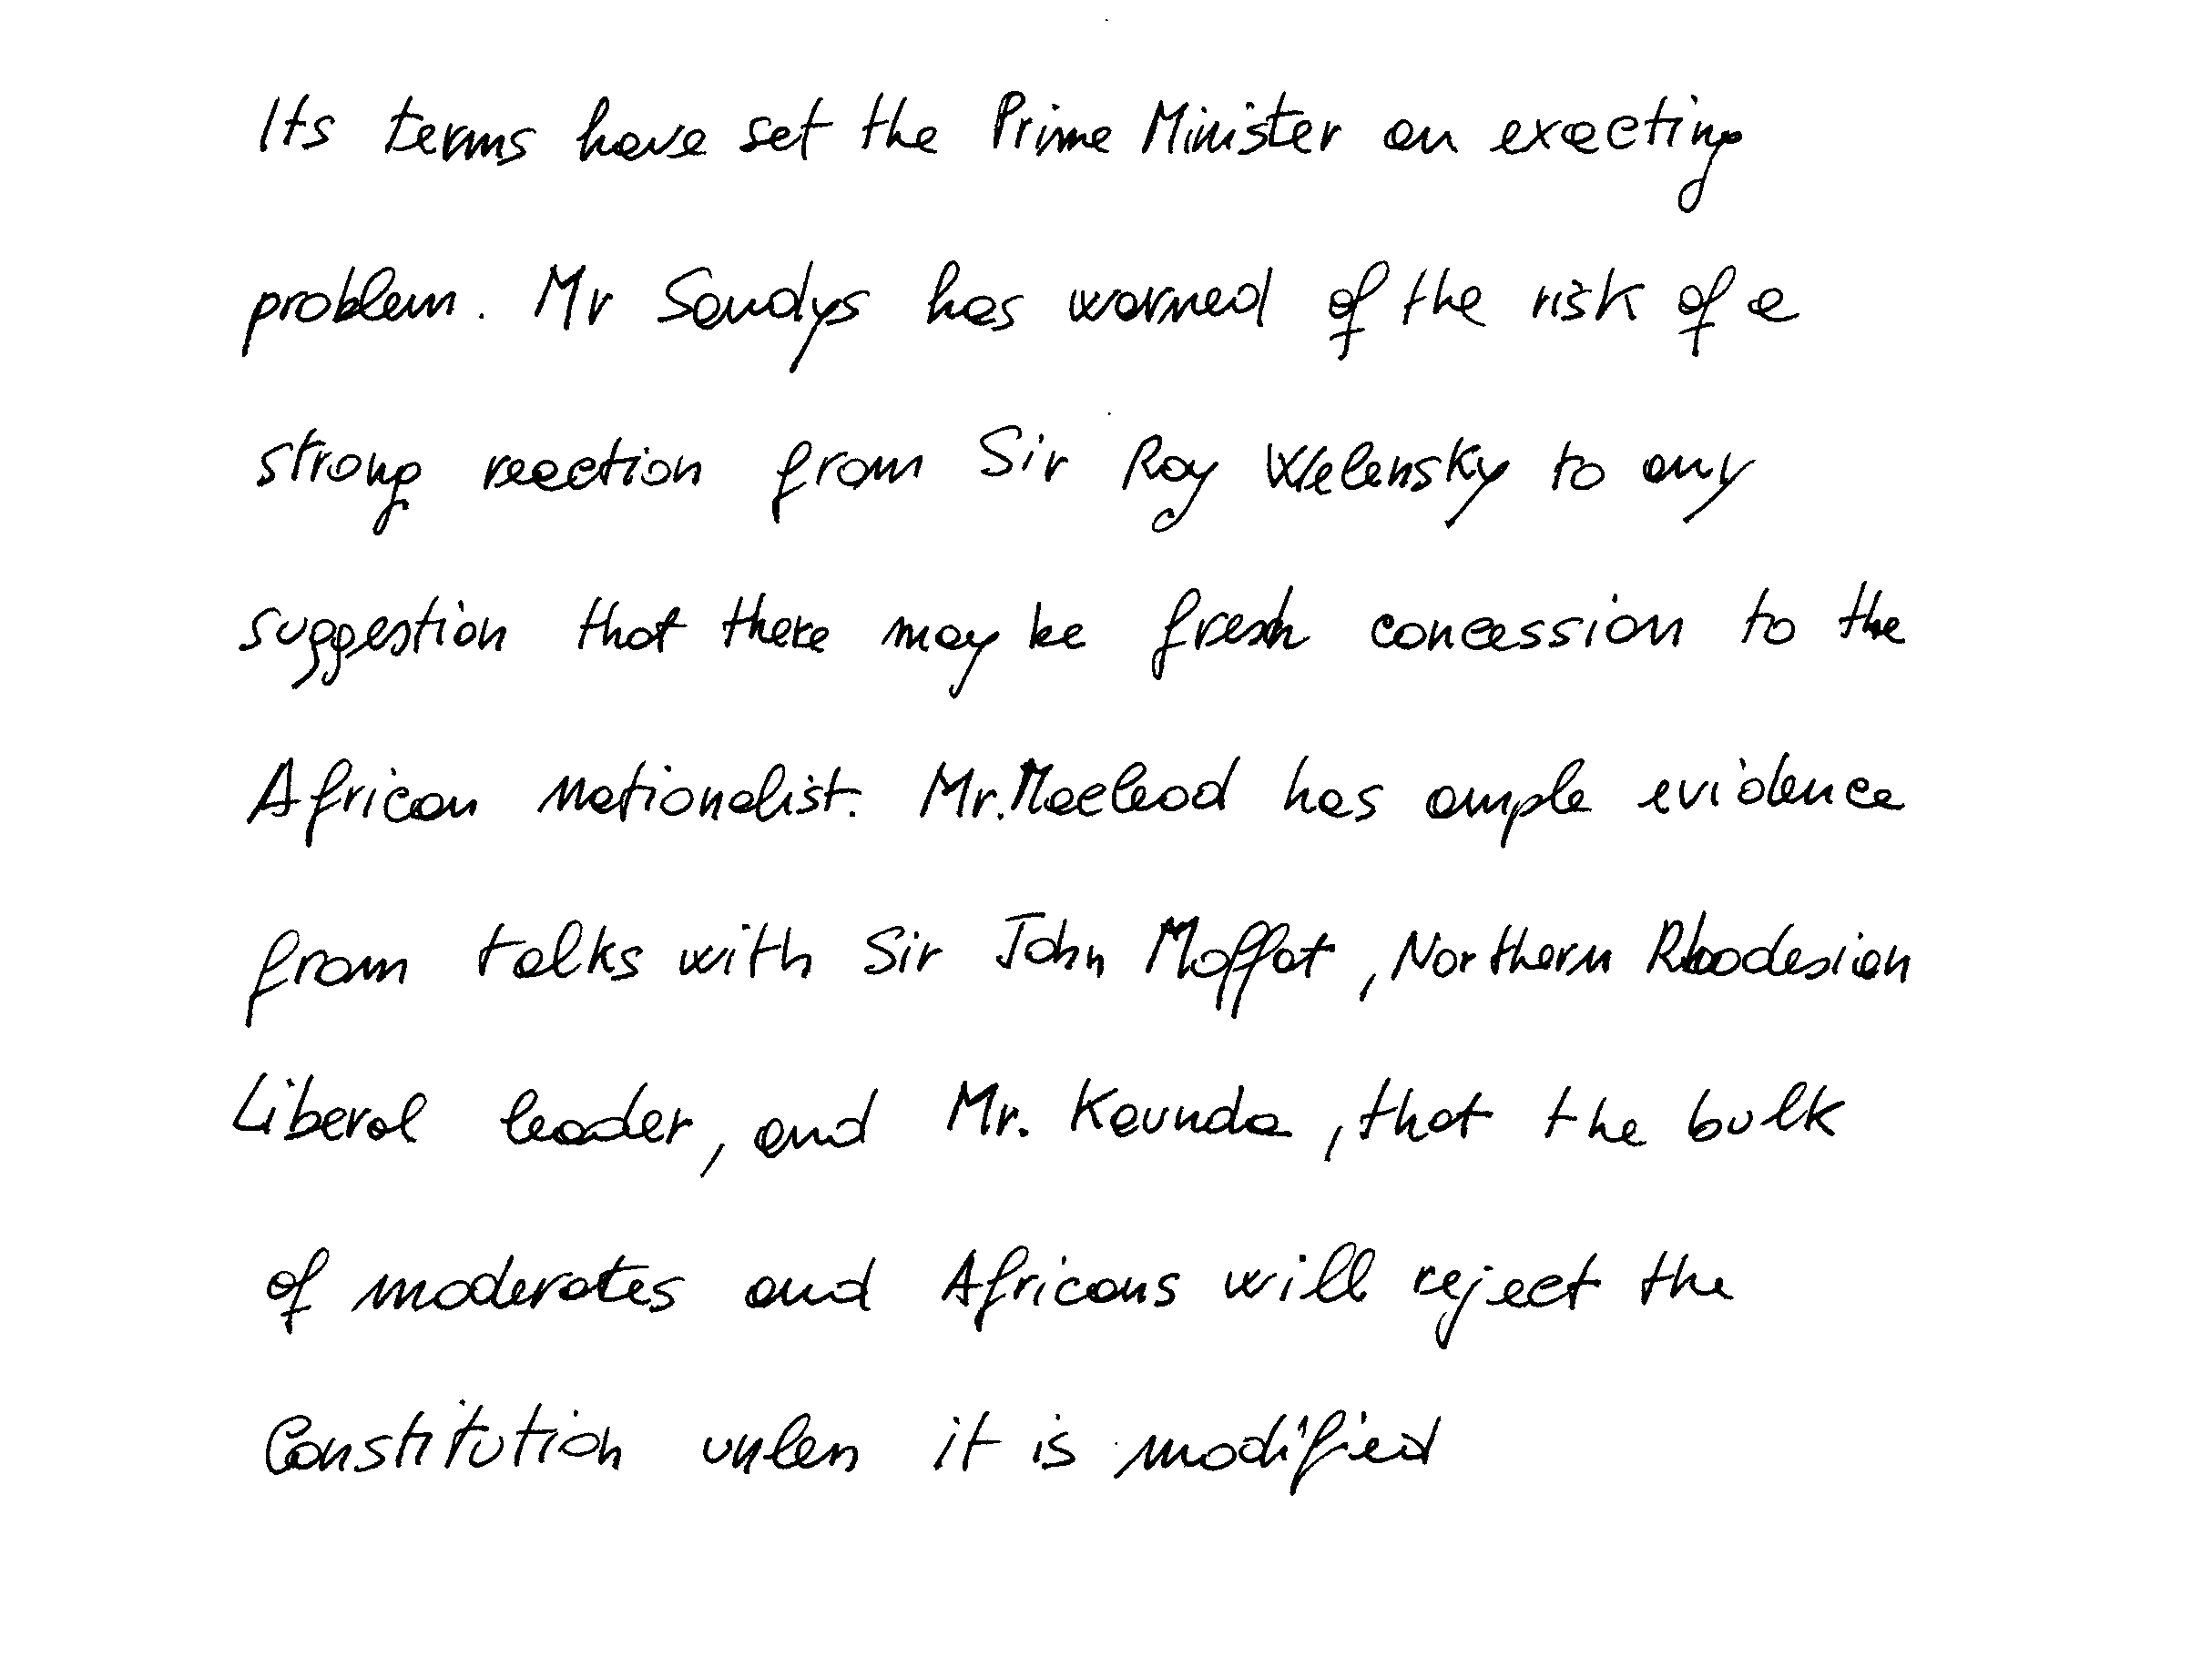 Its terms have set the Prime Minister an exacting
problem. Mr Sandys has warned of the risk of a
strong reaction from Sir Roy Welensky to any
suggestion that there may be fresh concession to the
African nationalist. Mr. Macleod has ample evidence
from talks with Sir John Moffat, Northern Rhodesian
Liberal leader, and Mr. Kaunda, that the bulk
of moderates and Africans will reject the
Constitution unless it is modified